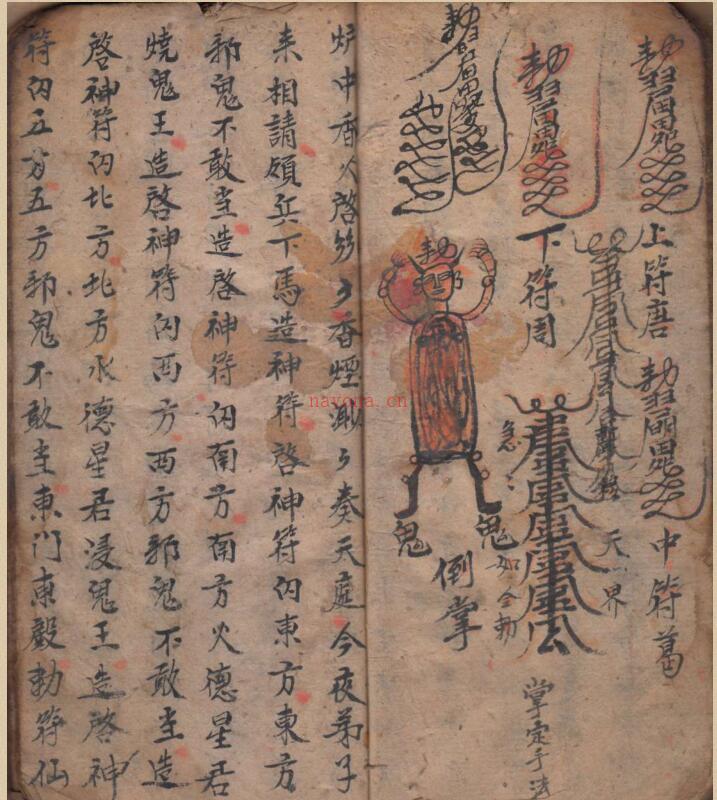 上符唐
中符葛
天界
下符周
急々如令勅
勅
鬼
鬼
倒掌
掌定手法
炉中香火啓紛々香煙渺々奏天庭今夜弟子
来相請領兵下馬造神符啓神符內東方東方
邪鬼不敢当造啓神符內南方南方火德星君
燒鬼王造啓神符內西方西方邪鬼不敢当造
啓神符內北方北方水德星君浸鬼王造啓神
符內五方五方邪鬼不敢当東门東殿勅符仙
nayona.cn